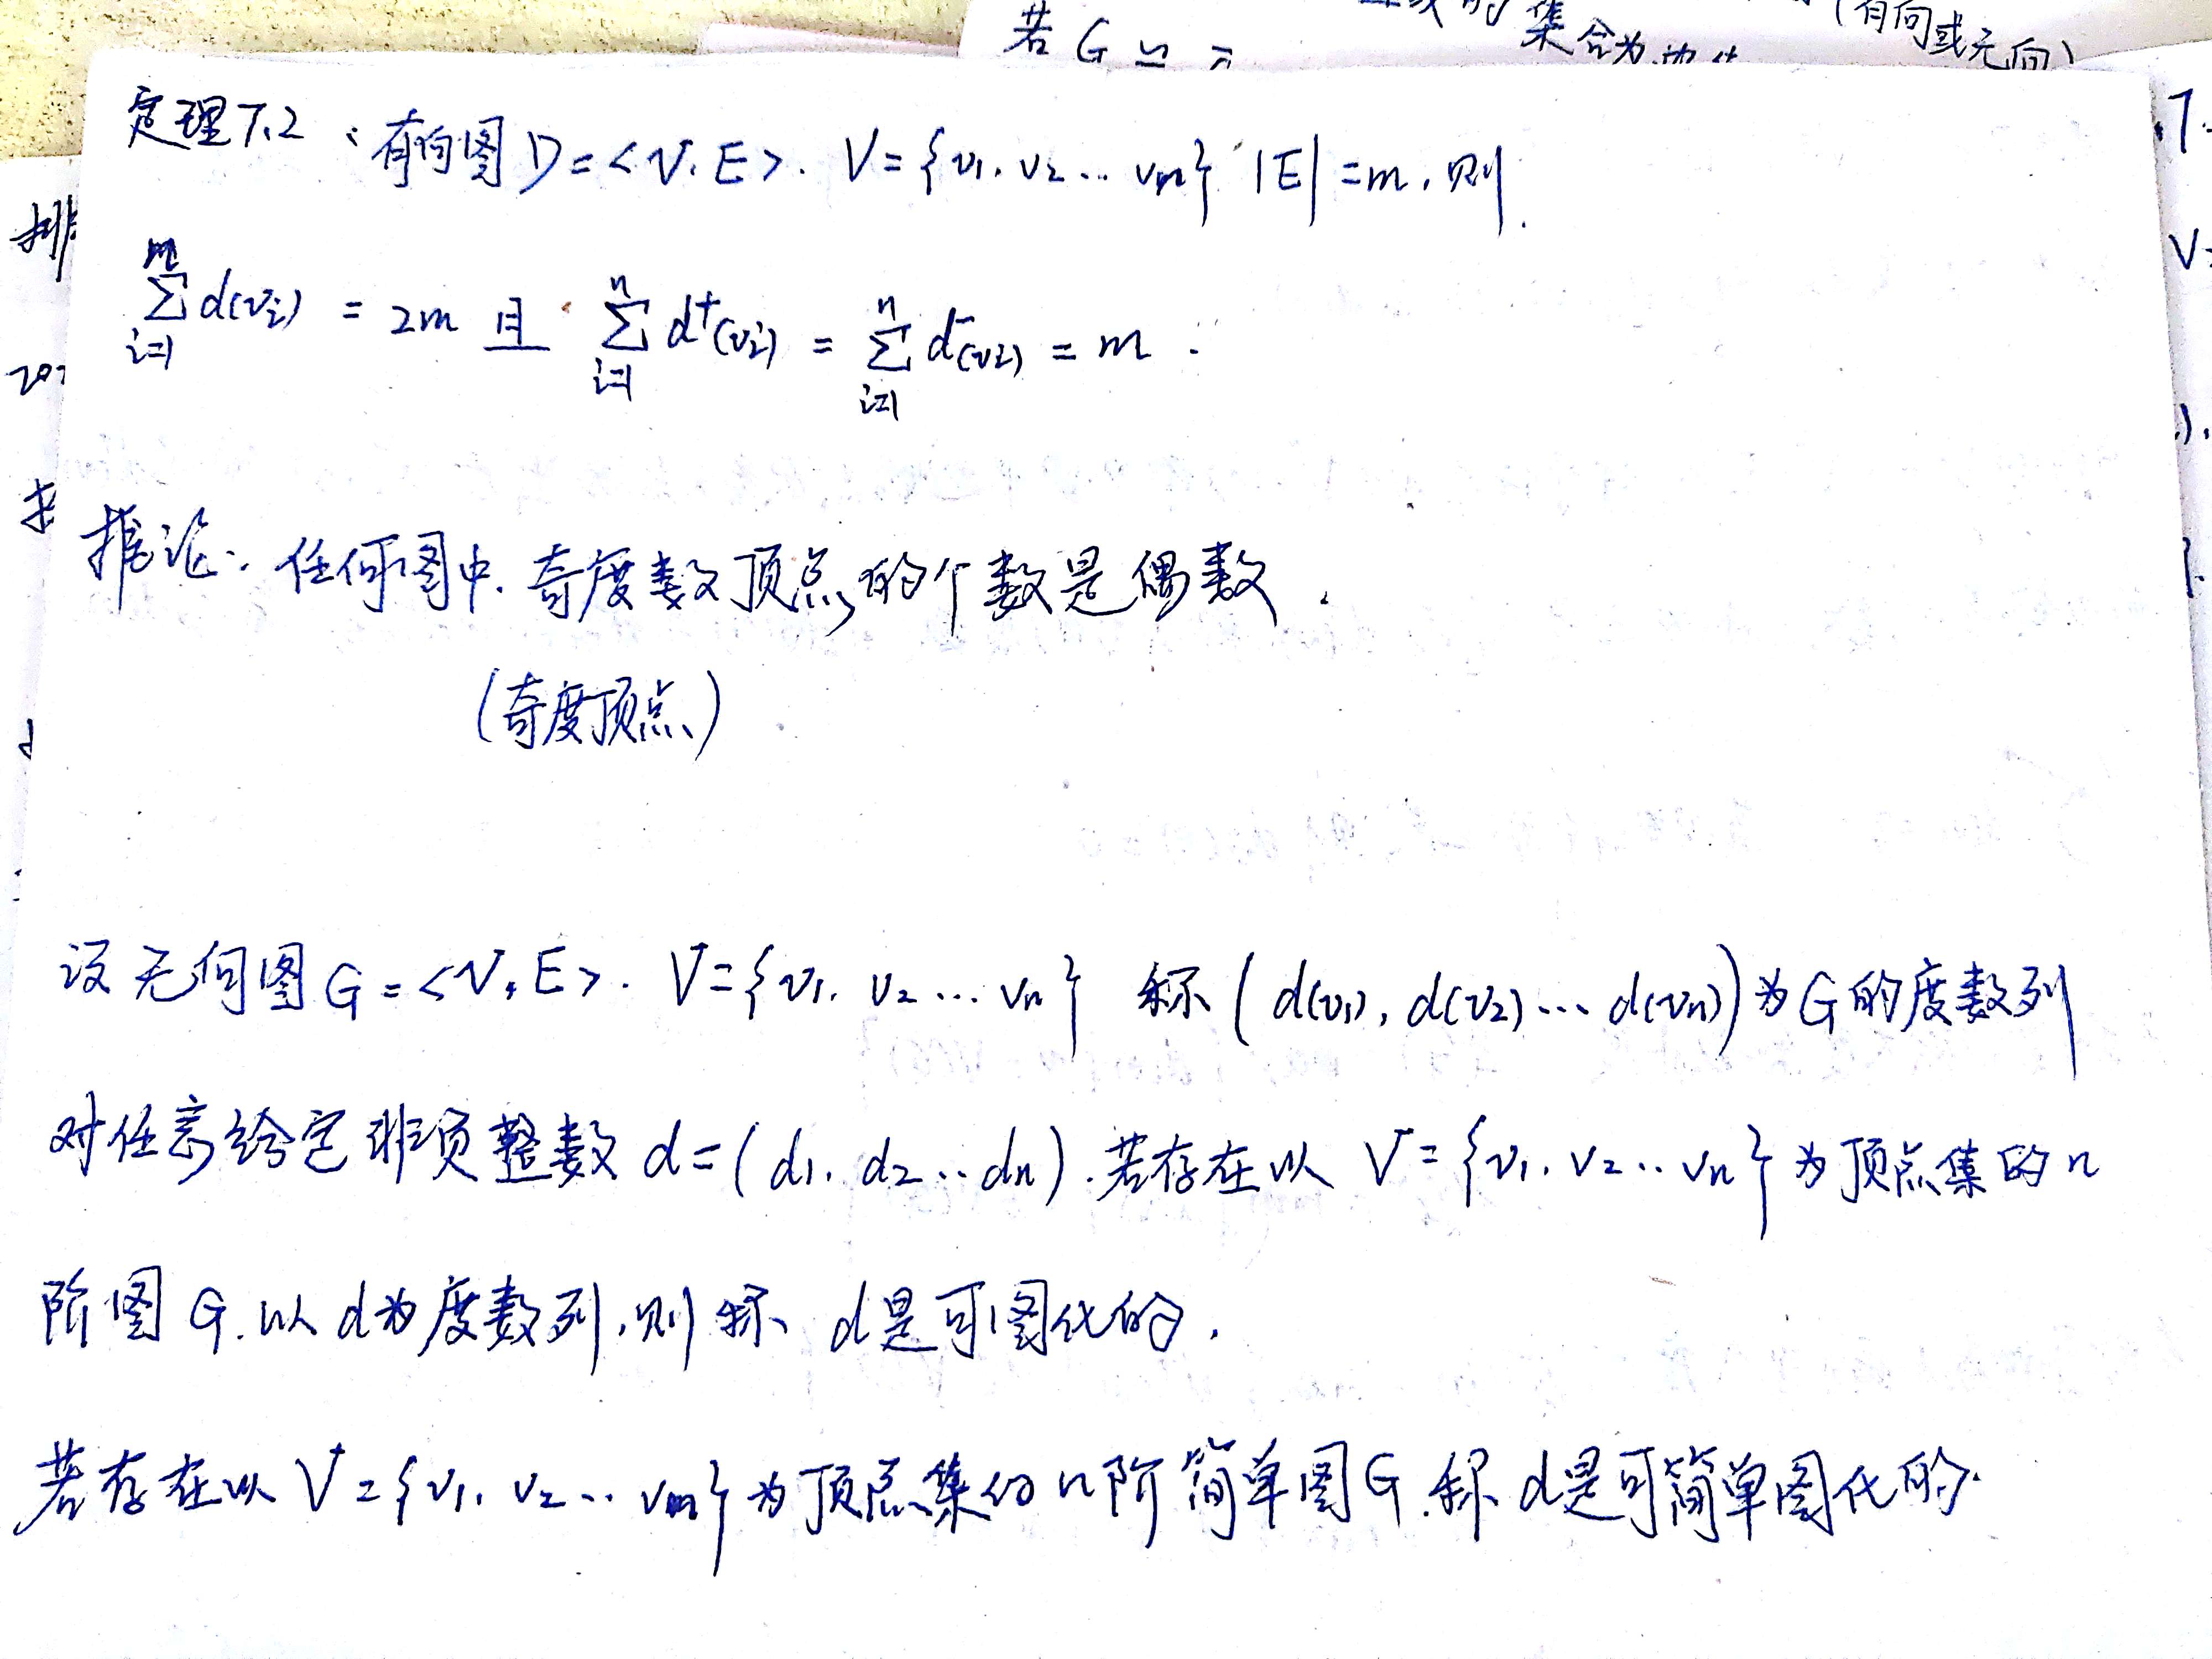 若 G 的集合为 (有向或无向)
定理7.2、有向图 D=<V,E>. V={v1, v2 … vn} |E|=m, 则.
n∑i=1 d(vi) = 2m 且 n∑i=1 d⁺(vi) = n∑i=1 d⁻(vi) = m.
推论: 任何图中. 奇度数顶点的个数是偶数.
(奇度顶点)
设无向图 G=<V,E>. V={v1, v2 … vn} 称 (d(v1), d(v2) … d(vn)) 为G的度数列
对任意给定非负整数 d=(d1, d2 … dn). 若存在以 V={v1, v2 … vn} 为顶点集的 n
阶图 G. 以 d为度数列, 则称 d是可图化的.
若存在以 V={v1, v2 … vn} 为顶点集的 n阶简单图G. 称 d是可简单图化的.